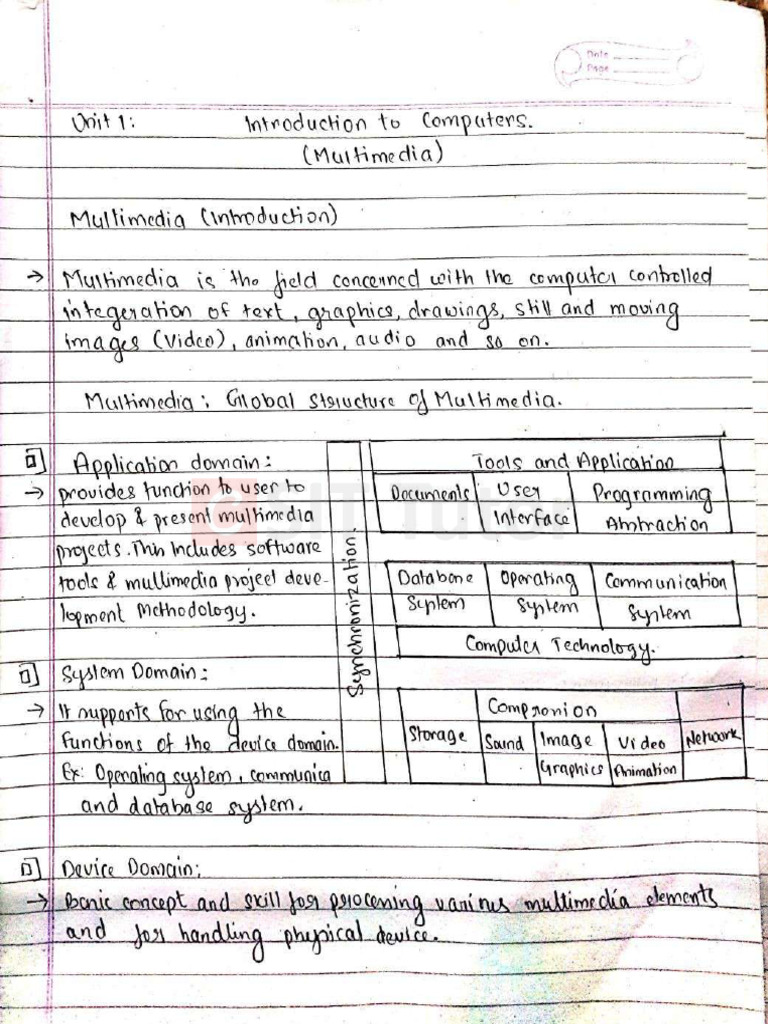 Date
Page
Unit 1: Introduction to Computers.
(Multimedia)
Multimedia (Introduction)
→ Multimedia is the field concerned with the computer controlled
integeration of text, graphics, drawings, still and moving
images (Video), animation, audio and so on.
Multimedia: Global structure of Multimedia.
Application domain:
→ provides function to user to
develop & present multimedia
projects. This Includes software
tools & multimedia project deve-
lopment Methodology.
System Domain:
→ It supports for using the
functions of the device domain.
Ex: Operating system, communica
and database system.
Synchronization.
Tools and Application
Documents User Interface Programming Abstraction
Database System Operating System Communication System
Computer Technology.
Compression
Storage Sound Image Graphics Video Animation Network
Device Domain:
→ Basic concept and skill for processing various multimedia elements
and for handling physical device.